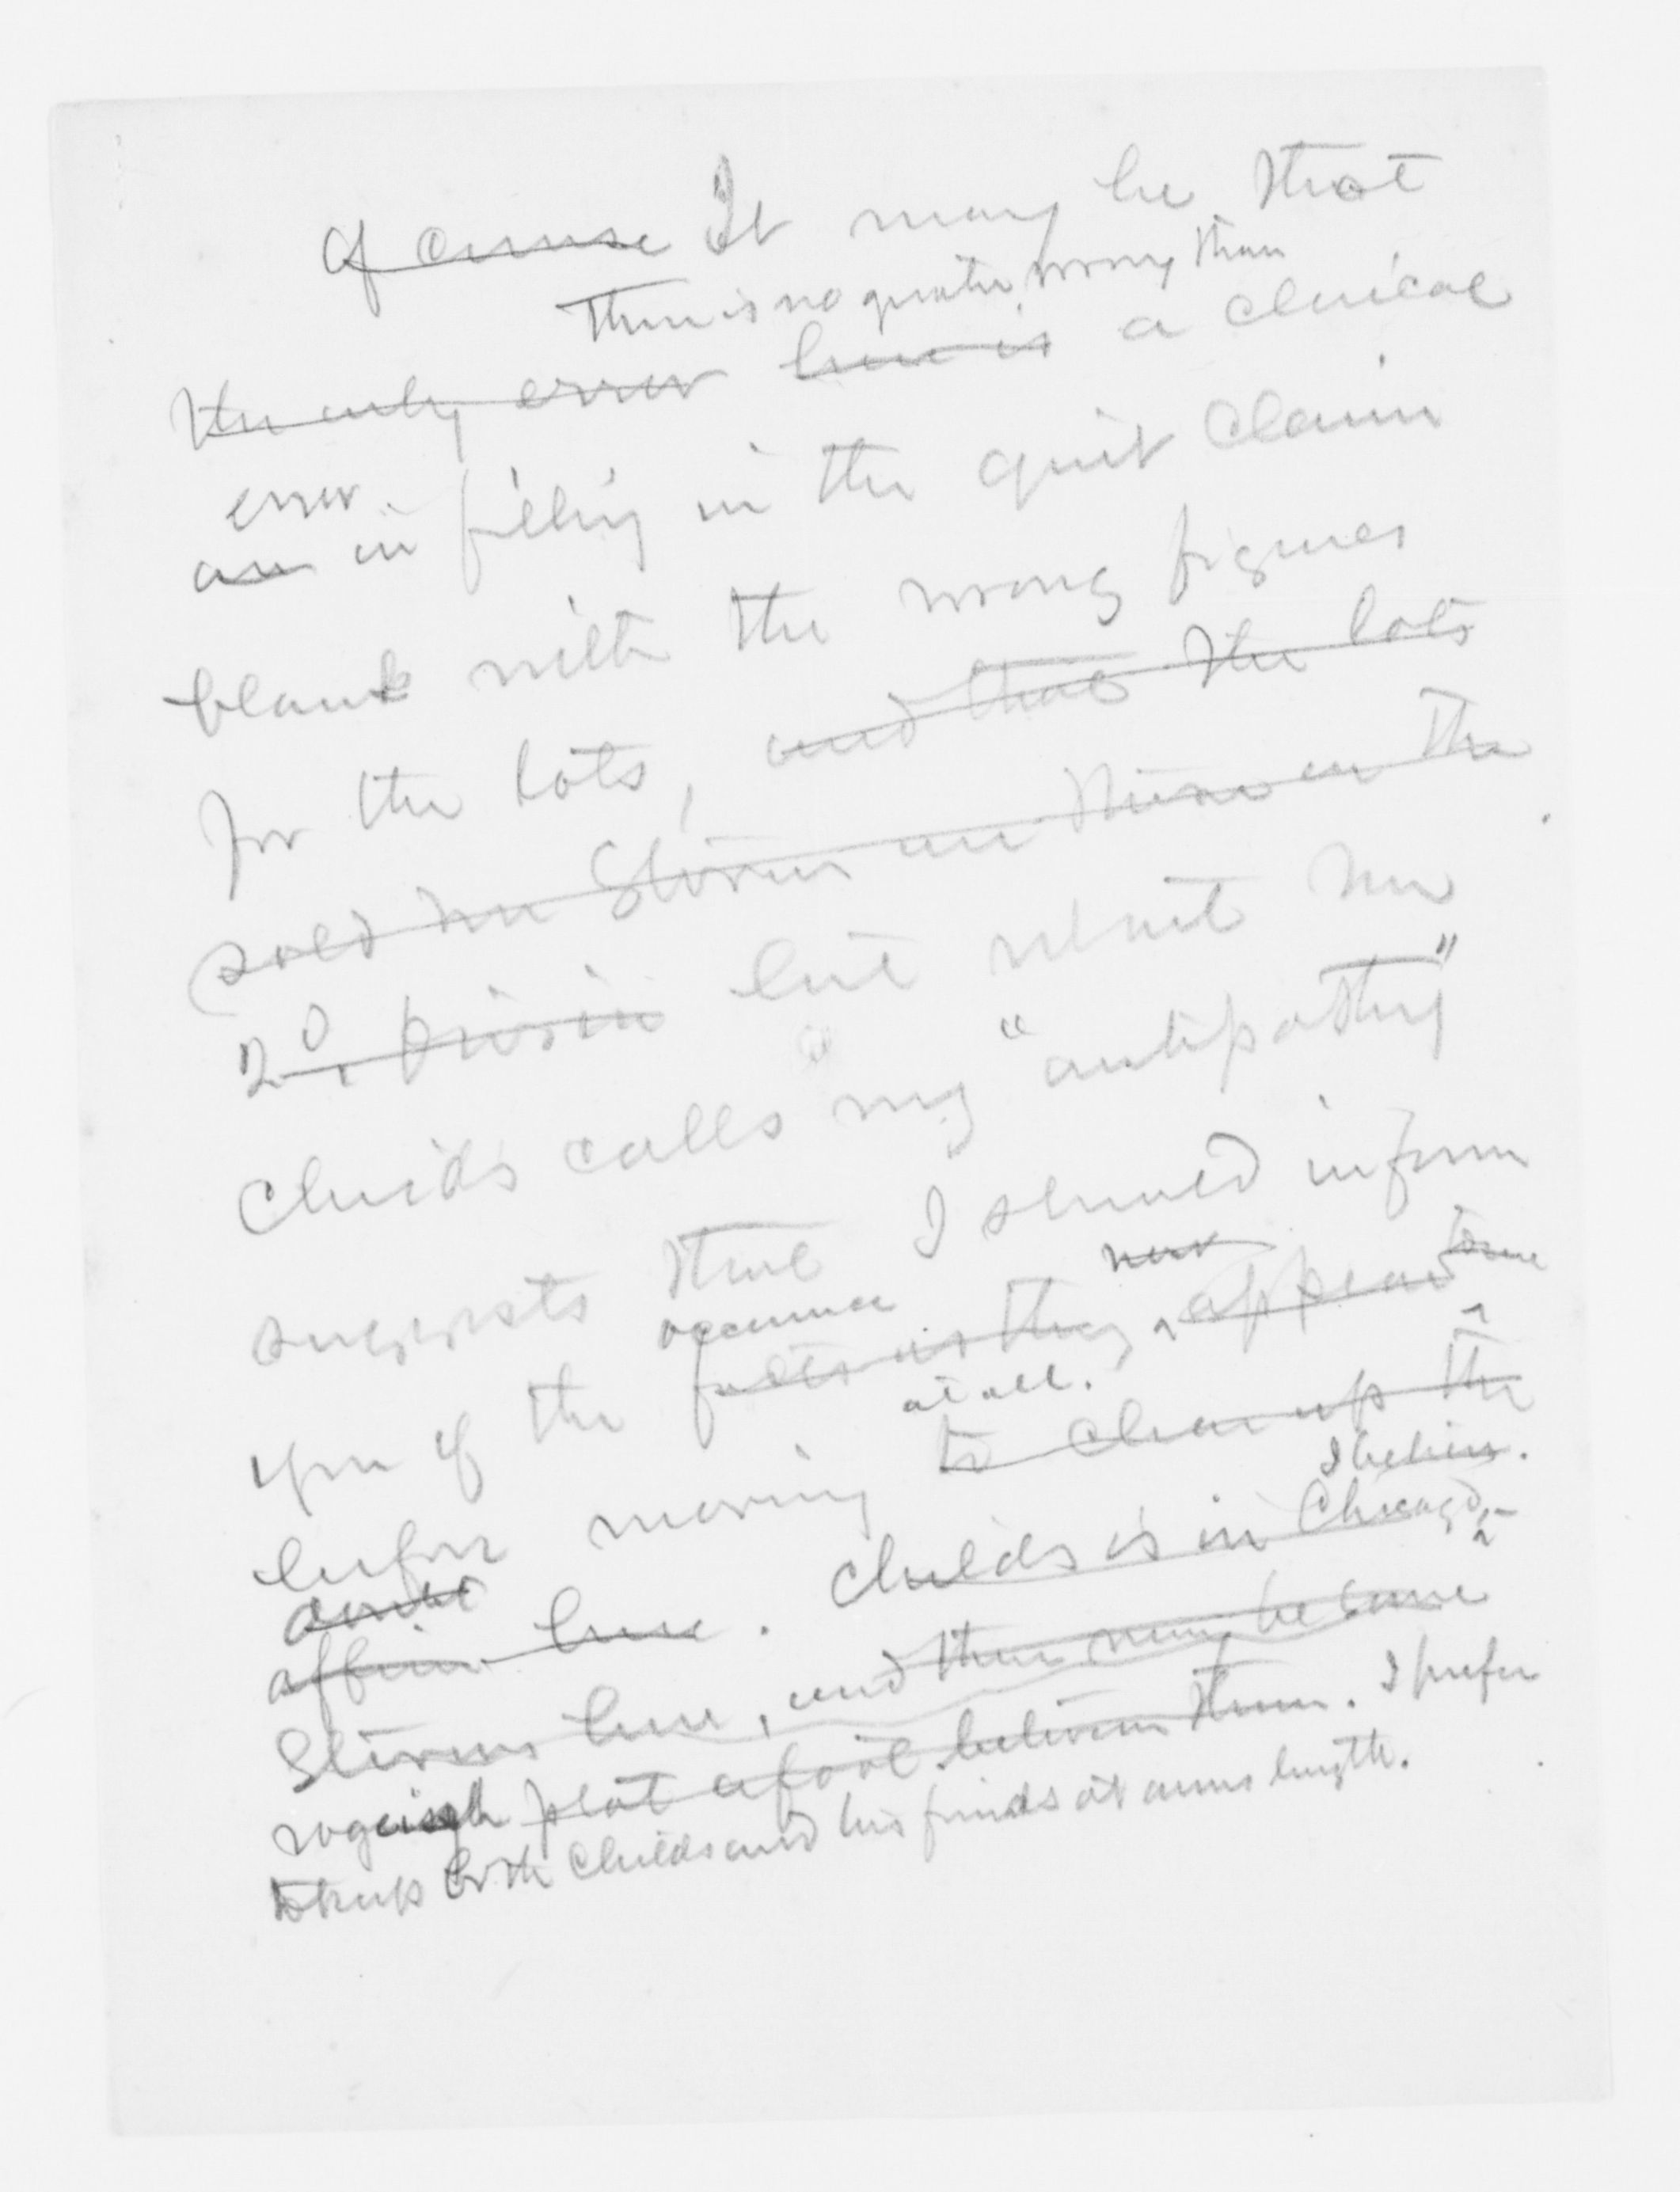 Of course It may be that
There is no greater wrong than
the only error here is a clerical
error
an in filling in the quit claim
blank with the wrong figures
for the lots, and that the lots
sold me Storm in the
20, but what me
Childs calls my "antipathy"
suggests that I should inform
you of the facts as they appear to me
occurrence
before moving to clear up the
at all.
I believe.
affair here. Childs is in Chicago
Storms here, and there may be some
roguish plot afoot between them. I prefer
to keep both Childs and his friends at arms length.